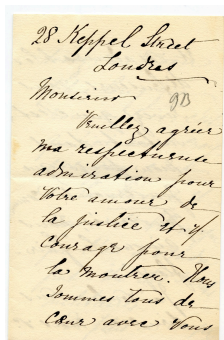 28 Keppel Street
Londres
Monsieur
GB
Veuillez agréer
ma respectueuse
admiration pour
votre amour de
la justice et
courage pour
la montrer. Nous
sommes tous de
cœur avec vous